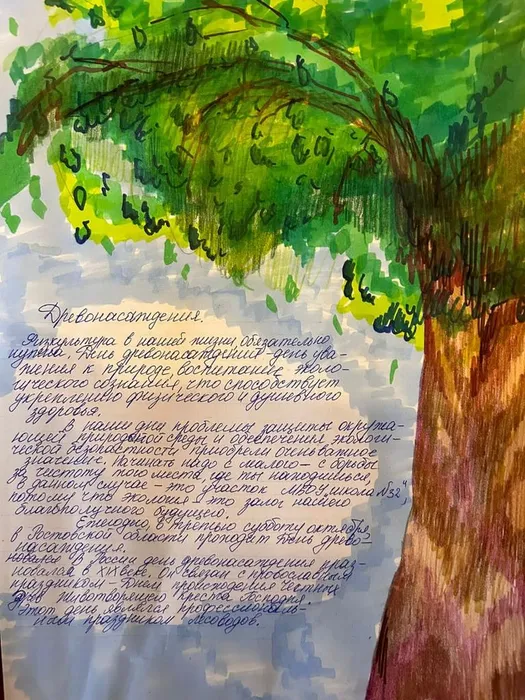 Древонасаждения.
Физкультура в нашей жизни обязательно
нужна. День древонасаждений - день ува-
жения к природе, воспитание эколо-
гического сознания, что способствует
укреплению физического и душевного
здоровья.
В наши дни проблемы защиты окружа-
ющей природной среды и обеспечения экологи-
ческой безопастности приобрели очень важное
значение. Начинать надо с малого - с борьбы
за чистоту того места, где ты находишься,
В данном случае - это участок МБОУ "школа №32",
потому что экология - это залог нашего
благополучного будущего.
Ежегодно, в третью субботу октября,
в Ростовской области проходит День древо-
насаждения.
В России день древонасаждения праз-
новался в XVII веке. Он связан с православным
праздником - Днём происхождения честных
Древ Животворящего Креста Господня.
Этот день является профессиональ-
ным праздником лесоводов.